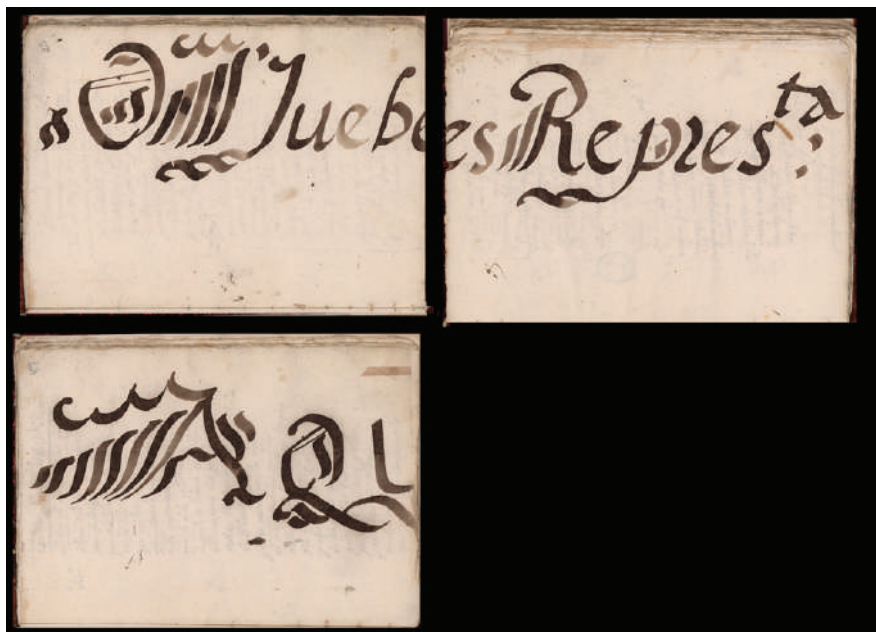 Juebe
es Represta:
A Q